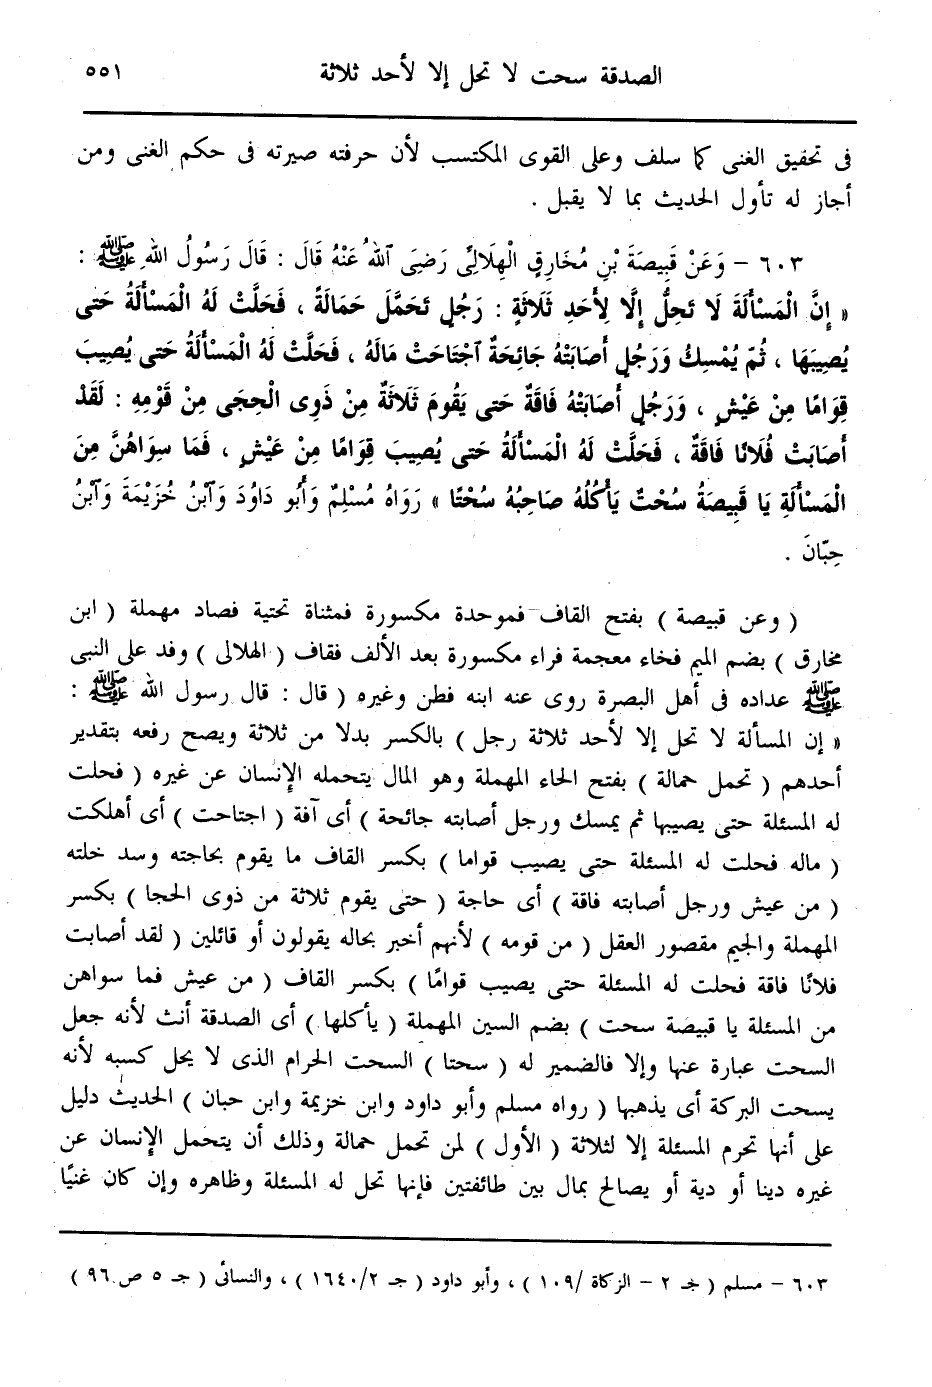 الصدقة سحت لا تحل إلا لأحد ثلاثة ٥٥١
فى تحقيق الغنى كما سلف وعلى القوى المكتسب لأن حرفته صيرته فى حكم الغنى ومن
أجاز له تأول الحديث بما لا يقبل .
٦٠٣ - وَعَنْ قَبِيصَةَ بْنِ مُخَارِقٍ الْهِلَالِىِّ رَضِىَ ٱللهُ عَنْهُ قَالَ : قَالَ رَسُولُ اللهِ ﷺ :
« إِنَّ الْمَسْأَلَةَ لَا تَحِلُّ إِلَّا لِأَحَدِ ثَلَاثَةٍ : رَجُلٍ تَحَمَّلَ حَمَالَةً ، فَحَلَّتْ لَهُ الْمَسْأَلَةُ حَتى
يُصِيبَهَا ، ثُمّ يُمْسِكُ وَرَجُلٍ أَصَابَتْهُ جَائِحَةٌ ٱجْتَاحَتْ مَالَهُ ، فَحَلَّتْ لَهُ الْمَسْأَلَةُ حَتى يُصِيبَ
قِوَامًا مِنْ عَيْشٍ ، وَرَجُلٍ أَصَابَتْهُ فَاقَةٌ حَتى يَقُومَ ثَلَاثَةٌ مِنْ ذَوِى الْحِجَى مِنْ قَوْمِهِ : لَقَدْ
أَصَابَتْ فُلَانًا فَاقَةٌ ، فَحَلَّتْ لَهُ الْمَسْأَلَةُ حَتى يُصِيبَ قِوَامًا مِنْ عَيْشٍ ، فَمَا سِوَاهُنَّ مِنَ
الْمَسْأَلَةِ يَا قَبِيصَةُ سُحْتٌ يَأْكُلُهُ صَاحِبُهُ سُحْتًا » رَوَاهُ مُسْلِمٌ وَأَبُو دَاوُدَ وَٱبْنُ خُزَيْمَةَ وَٱبْنُ
حِبّانَ .
( وعن قبيصة ) بفتح القاف فموحدة مكسورة فمثناة تحتية فصاد مهملة ( ابن
مخارق ) بضم الميم فخاء معجمة فراء مكسورة بعد الألف فقاف ( الهلالى ) وفد على النبى
ﷺ عداده فى أهل البصرة روى عنه ابنه فطن وغيره ( قال : قال رسول الله ﷺ :
« إن المسألة لا تحل إلا لأحد ثلاثة رجل ) بالكسر بدلا من ثلاثة ويصح رفعه بتقدير
أحدهم ( تحمل حمالة ) بفتح الحاء المهملة وهو المال يتحمله الإنسان عن غيره ( فحلت
له المسئلة حتى يصيبها ثم يمسك ورجل أصابته جائحة ) أى آفة ( اجتاحت ) أى أهلكت
( ماله فحلت له المسئلة حتى يصيب قواما ) بكسر القاف ما يقوم بحاجته وسد خلته
( من عيش ورجل أصابته فاقة ) أى حاجة ( حتى يقوم ثلاثة من ذوى الحجا ) بكسر
المهملة والجيم مقصور العقل ( من قومه ) لأنهم أخبر بحاله يقولون أو قائلين ( لقد أصابت
فلانًا فاقة فحلت له المسئلة حتى يصيب قوامًا ) بكسر القاف ( من عيش فما سواهن
من المسئلة يا قبيصة سحت ) بضم السين المهملة ( يأكلها ) أى الصدقة أنث لأنه جعل
السحت عبارة عنها وإلا فالضمير له ( سحتا ) السحت الحرام الذى لا يحل كسبه لأنه
يسحت البركة أى يذهبها ( رواه مسلم وأبو داود وابن خزيمة وابن حبان ) الحديث دليل
على أنها تحرم المسئلة إلا لثلاثة ( الأول ) لمن تحمل حمالة وذلك أن يتحمل الإنسان عن
غيره دينا أو دية أو يصالح بمال بين طائفتين فإنها تحل له المسئلة وظاهره وإن كان غنيًا
٦٠٣ - مسلم ( جـ ٢ - الزكاة /١٠٩ ) ، وأبو داود ( جـ ١٦٤٠/٢ ) ، والنسائى ( جـ ٥ ص ٩٦ )